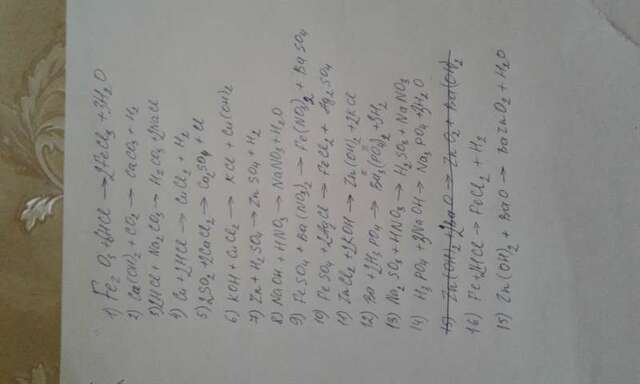 1) Fe2O3+6HCl →2FeCl3 + 3H2O
2) Ca(OH)2 + CO2 → CaCO3 + H2
3) 2HCl + Na2CO3 → H2CO3 2NaCl
4) Cu+2HCl → CuCl2 + H2
5) 2SO4 +2CaCl2 → Ca2SO4 + Cl
6) KOH + CuCl2 → KCl + Cu(OH)2
7) Zn + H2SO4 → ZnSO4 + H2
8) NaOH + HNO3 → NaNO3 + H2O
9) FeSO4 + Ba(NO3)2 → Fe(NO3)2 + BaSO4
10) FeSO4 +2HgCl → FeCl2 + Hg2SO4
11) ZnCl2 +2KOH → Zn(OH)2 +2KCl
12) Ba +2H3PO4 → Ba3(PO4)2 +3H2
13) Na2SO4 +HNO3 → H2SO4 + NaNO3
14) H3PO4 +3NaOH → Na3PO4 +3H2O
15) Zn(OH)2 + BaO → ZnO2 + Ba(OH)2
16) Fe 2HCl → FeCl2 + H2
15) Zn(OH)2 + BaO → BaZnO2 + H2O